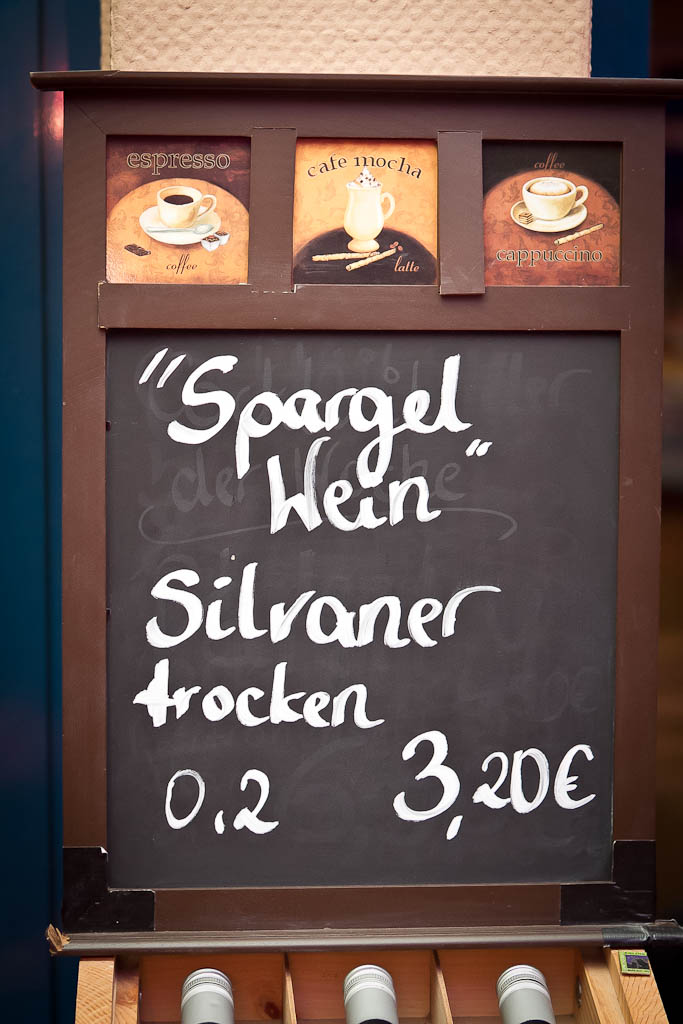 espresso
coffee
cafe mocha
latte
coffee
cappuccino
"Spargel
Wein"
Silvaner
trocken
0,2 3,20€